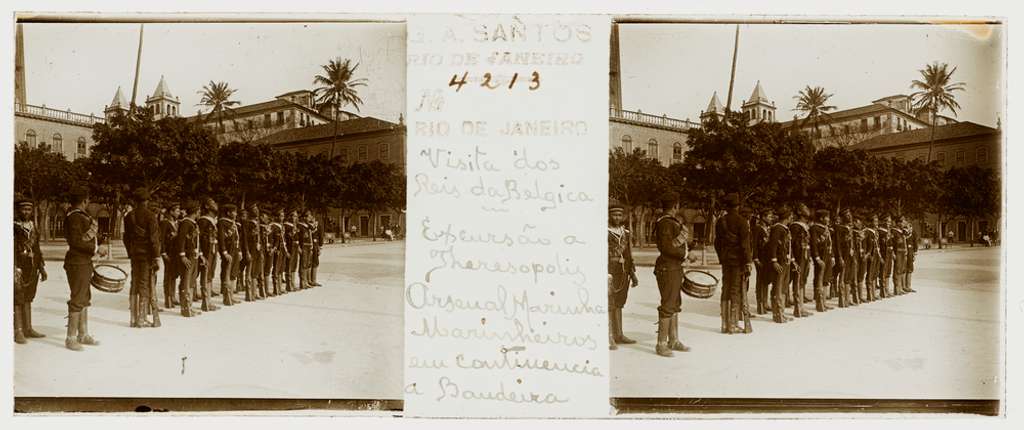 A. SANTOS
RIO DE JANEIRO
4213
RIO DE JANEIRO
Visita dos
Reis da Belgica
Excursão a
Theresopolis
Arsenal Marinha
Marinheiros
em continencia
a Bandeira